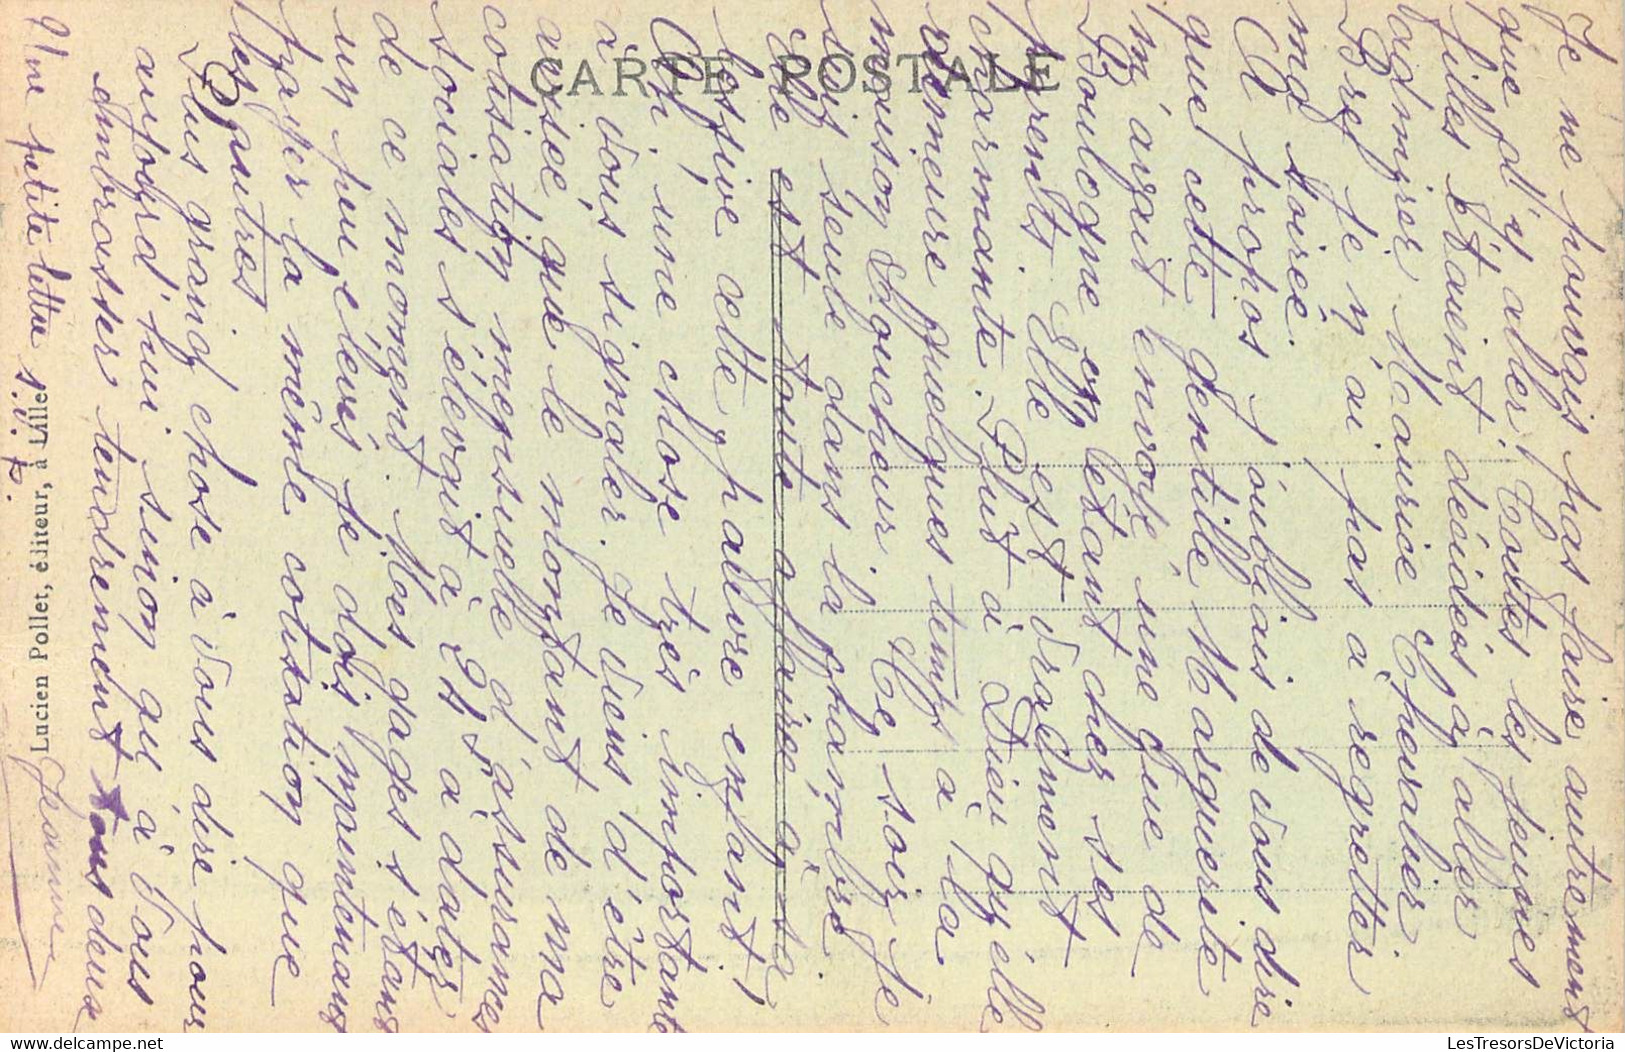 CARTE POSTALE
Je ne pourrais pas faire autrement
que d'y aller. Toutes les jeunes
filles étaient décidées à aller
admirer Maurice Chevalier.
Bref je n'ai pas à regretter
ma soirée.
A propos j'oubliais de vous dire
que cette gentille Marguerite
m'avait envoyé une vue de
Boulogne en étant chez ses
parents. Elle est vraiment
charmante. Plut à Dieu qu'elle
demeure quelques temps à la
maison Chouctheur. Ce soir je
suis seule dans la chambre
elle est toute affairée à sa
lessive cette pauvre enfant.
Ah, une chose très importante
à vous signaler. Je viens d'être
avisée que le montant de ma
cotisation mensuelle d'assurances
sociales s'élevait à 24 à dater
de ce moment. Mes gages s'étant
un peu élevés je dois maintenant
payer la même cotisation que
les autres
Plus grand chose à vous dire pour
aujourd'hui sinon qu'à vous
embrasser tendrement tous deux
Jeanne
Une petite lettre s.v.p.
Lucien Pollet, éditeur, à Lille
LesTresorsDeVictoria
delcampe.net